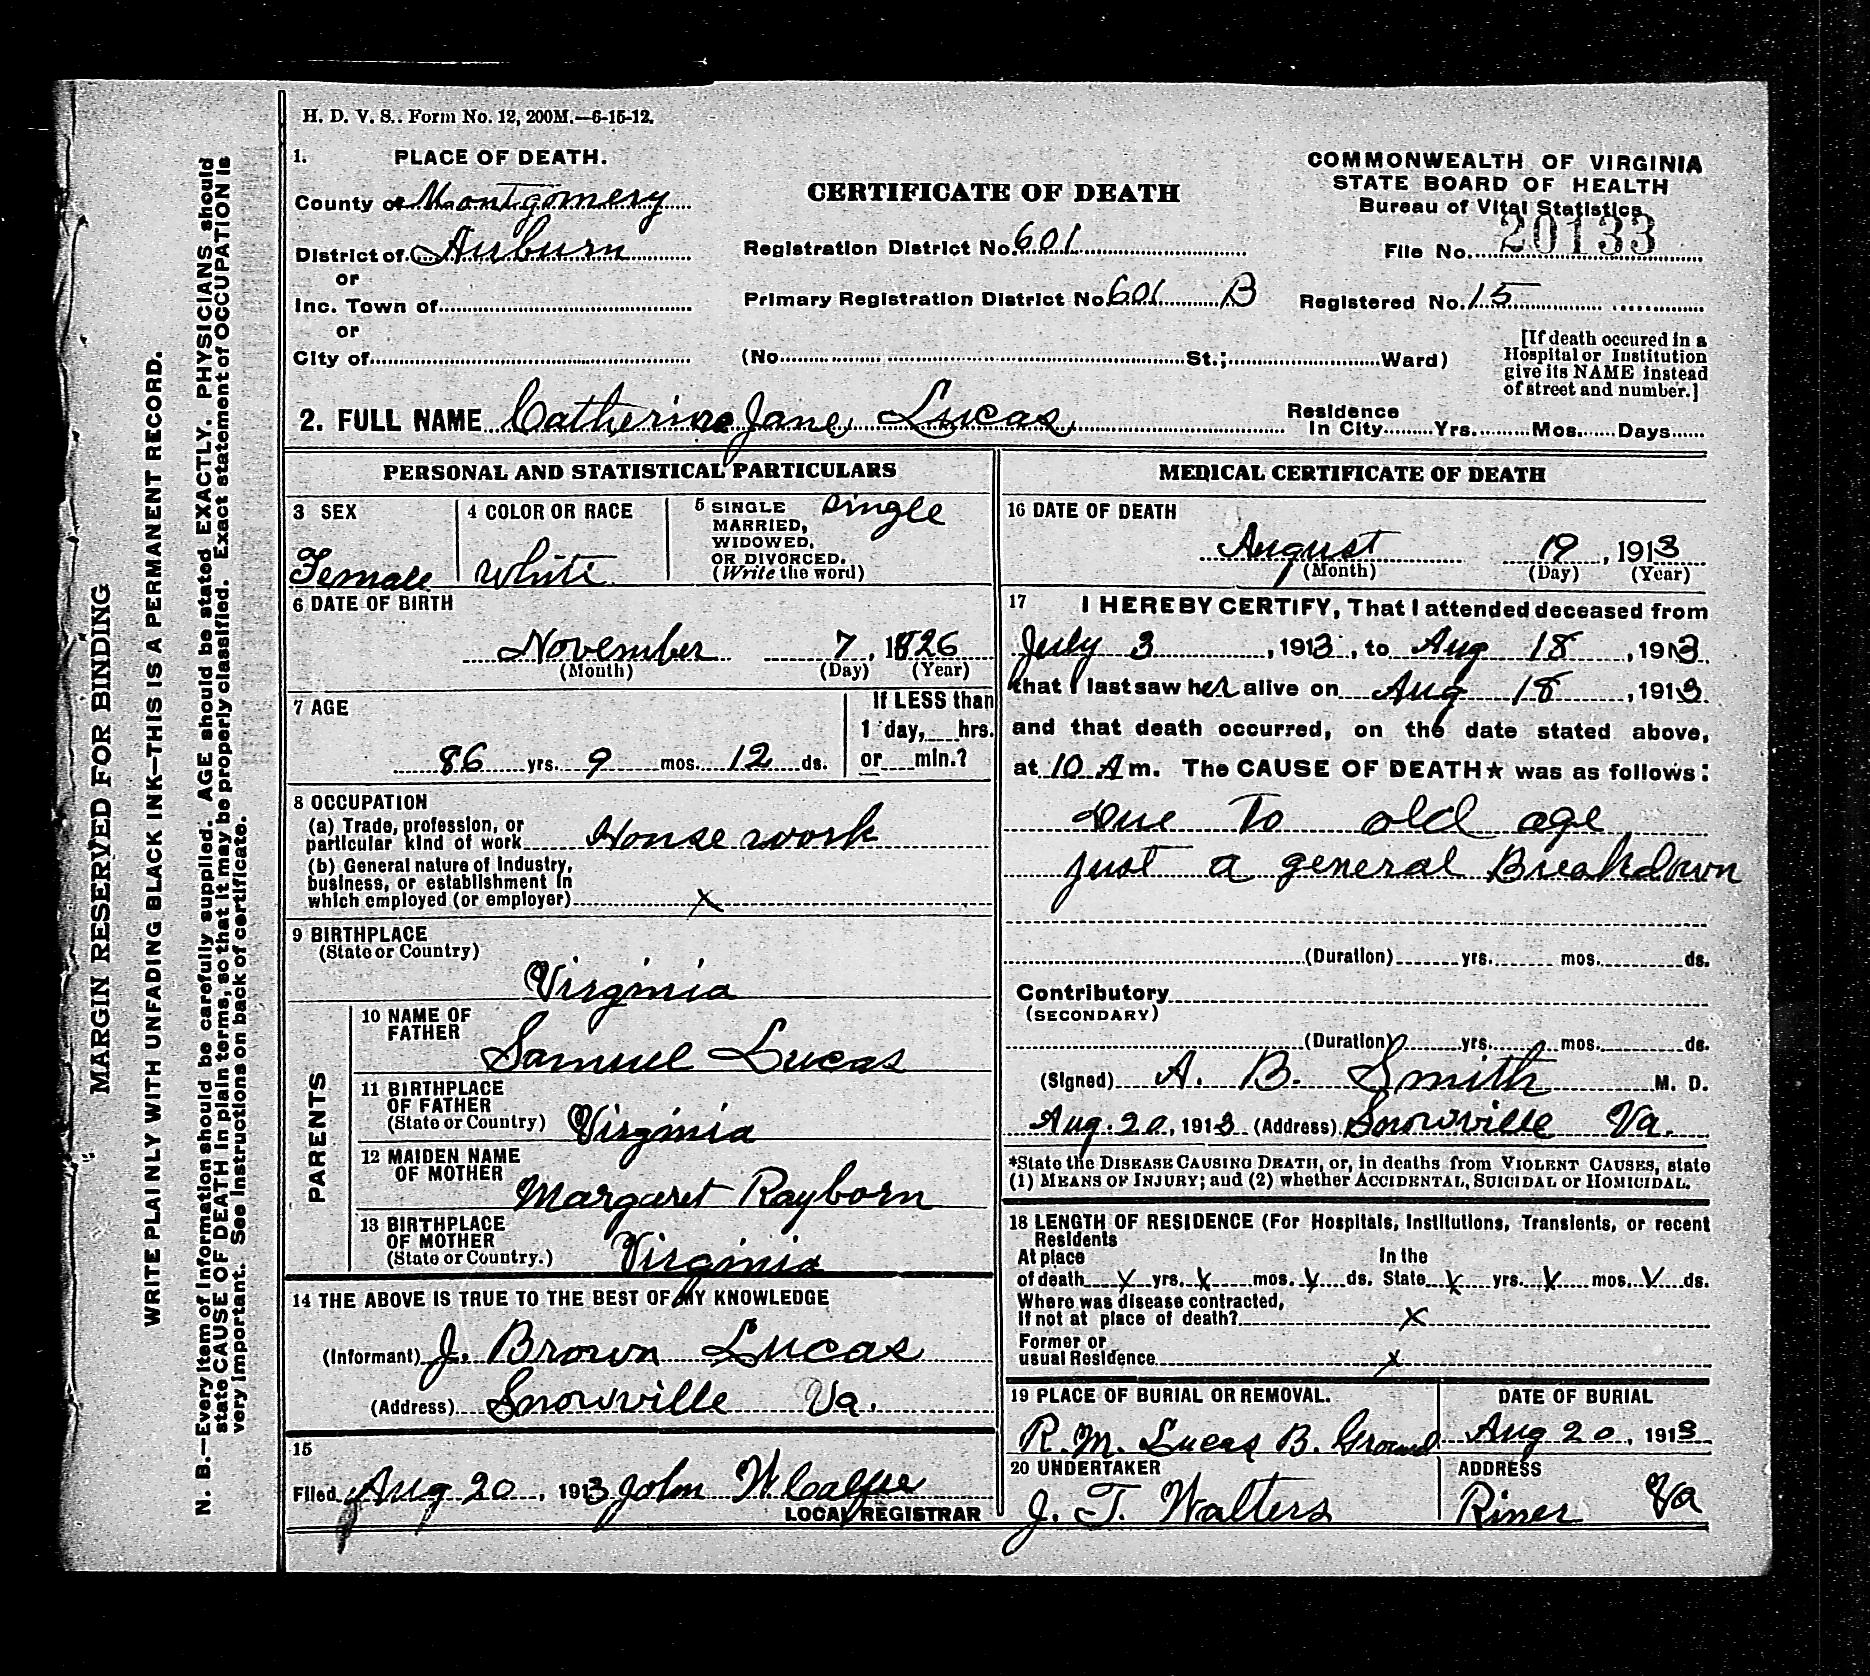 H. D. V. S.. Form No. 12, 200M.—6-15-12.
1. PLACE OF DEATH.
County of Montgomery
District of Auburn
or
Inc. Town of
or
City of
CERTIFICATE OF DEATH
Registration District No. 601
Primary Registration District No. 601 B
(No. St.; Ward)
COMMONWEALTH OF VIRGINIA
STATE BOARD OF HEALTH
Bureau of Vital Statistics
File No. 20133
Registered No. 15
[If death occured in a
Hospital or Institution
give its NAME instead
of street and number.]
2. FULL NAME Catherine Jane Lucas
Residence
In City Yrs. Mos. Days
PERSONAL AND STATISTICAL PARTICULARS
3 SEX
Female
4 COLOR OR RACE
White
5 SINGLE
MARRIED,
WIDOWED,
OR DIVORCED.
(Write the word)
single
6 DATE OF BIRTH
November 7, 1826
(Month) (Day) (Year)
7 AGE
86 yrs. 9 mos. 12 ds.
If LESS than
1 day, hrs.
or min.?
8 OCCUPATION
(a) Trade, profession, or
particular kind of work House work
(b) General nature of industry,
business, or establishment in
which employed (or employer) x
9 BIRTHPLACE
(State or Country)
Virginia
PARENTS
10 NAME OF
FATHER
Samuel Lucas
11 BIRTHPLACE
OF FATHER
(State or Country) Virginia
12 MAIDEN NAME
OF MOTHER
Margaret Rayborn
13 BIRTHPLACE
OF MOTHER
(State or Country.) Virginia
14 THE ABOVE IS TRUE TO THE BEST OF MY KNOWLEDGE
(Informant) J. Brown Lucas
(Address) Snowville Va.
15
Filed Aug 20, 1913 John W
LOCAL REGISTRAR
MEDICAL CERTIFICATE OF DEATH
16 DATE OF DEATH
August 19, 1913
(Month) (Day) (Year)
17 I HEREBY CERTIFY, That I attended deceased from
July 3, 1913, to Aug 18, 1913
that I last saw her alive on Aug 18, 1913
and that death occurred, on the date stated above,
at 10 A m. The CAUSE OF DEATH* was as follows:
Due To old age
just a general Breakdown
(Duration) yrs. mos. ds.
Contributory
(SECONDARY)
(Duration) yrs. mos. ds.
(Signed) A. B. Smith M. D.
Aug. 20, 1913 (Address) Snowville Va.
*State the DISEASE CAUSING DEATH, or, in deaths from VIOLENT CAUSES, state
(1) MEANS OF INJURY; and (2) whether ACCIDENTAL, SUICIDAL or HOMICIDAL.
18 LENGTH OF RESIDENCE (For Hospitals, Institutions, Transients, or recent
Residents
At place In the
of death x yrs. x mos. x ds. State x yrs. x mos. x ds.
Where was disease contracted,
If not at place of death? x
Former or
usual Residence x
19 PLACE OF BURIAL OR REMOVAL.
R. M. Lucas B. Ground
DATE OF BURIAL
Aug 20, 1913
20 UNDERTAKER
J. T. Walters
ADDRESS
Riner Va
MARGIN RESERVED FOR BINDING
WRITE PLAINLY WITH UNFADING BLACK INK—THIS IS A PERMANENT RECORD.
N. B.—Every item of information should be carefully supplied. AGE should be stated EXACTLY. PHYSICIANS should
state CAUSE OF DEATH in plain terms, so that it may be properly classified. Exact statement of OCCUPATION is
very important. See instructions on back of certificate.